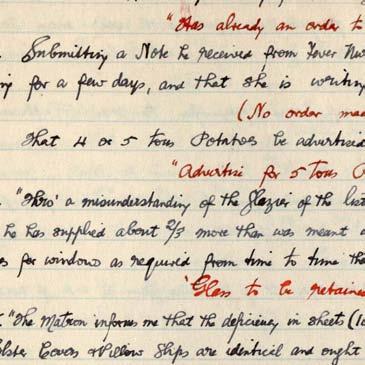 "Has already an order to
. Submitting a Note he received from Fever Nu
ng for a few days, and that she is writing
(No order mad
That 4 or 5 tons Potatoes be advertised
"Advertise for 5 Tons P
. "Thro' a misunderstanding of the Glazier of the list
he has supplied about 2/3 more than was meant
es for windows as required from time to time tha
"Glass to be retaine
. "The Matron informs me that the deficiency in sheets (1
olster Covers & Pillow Slips are identical and ought